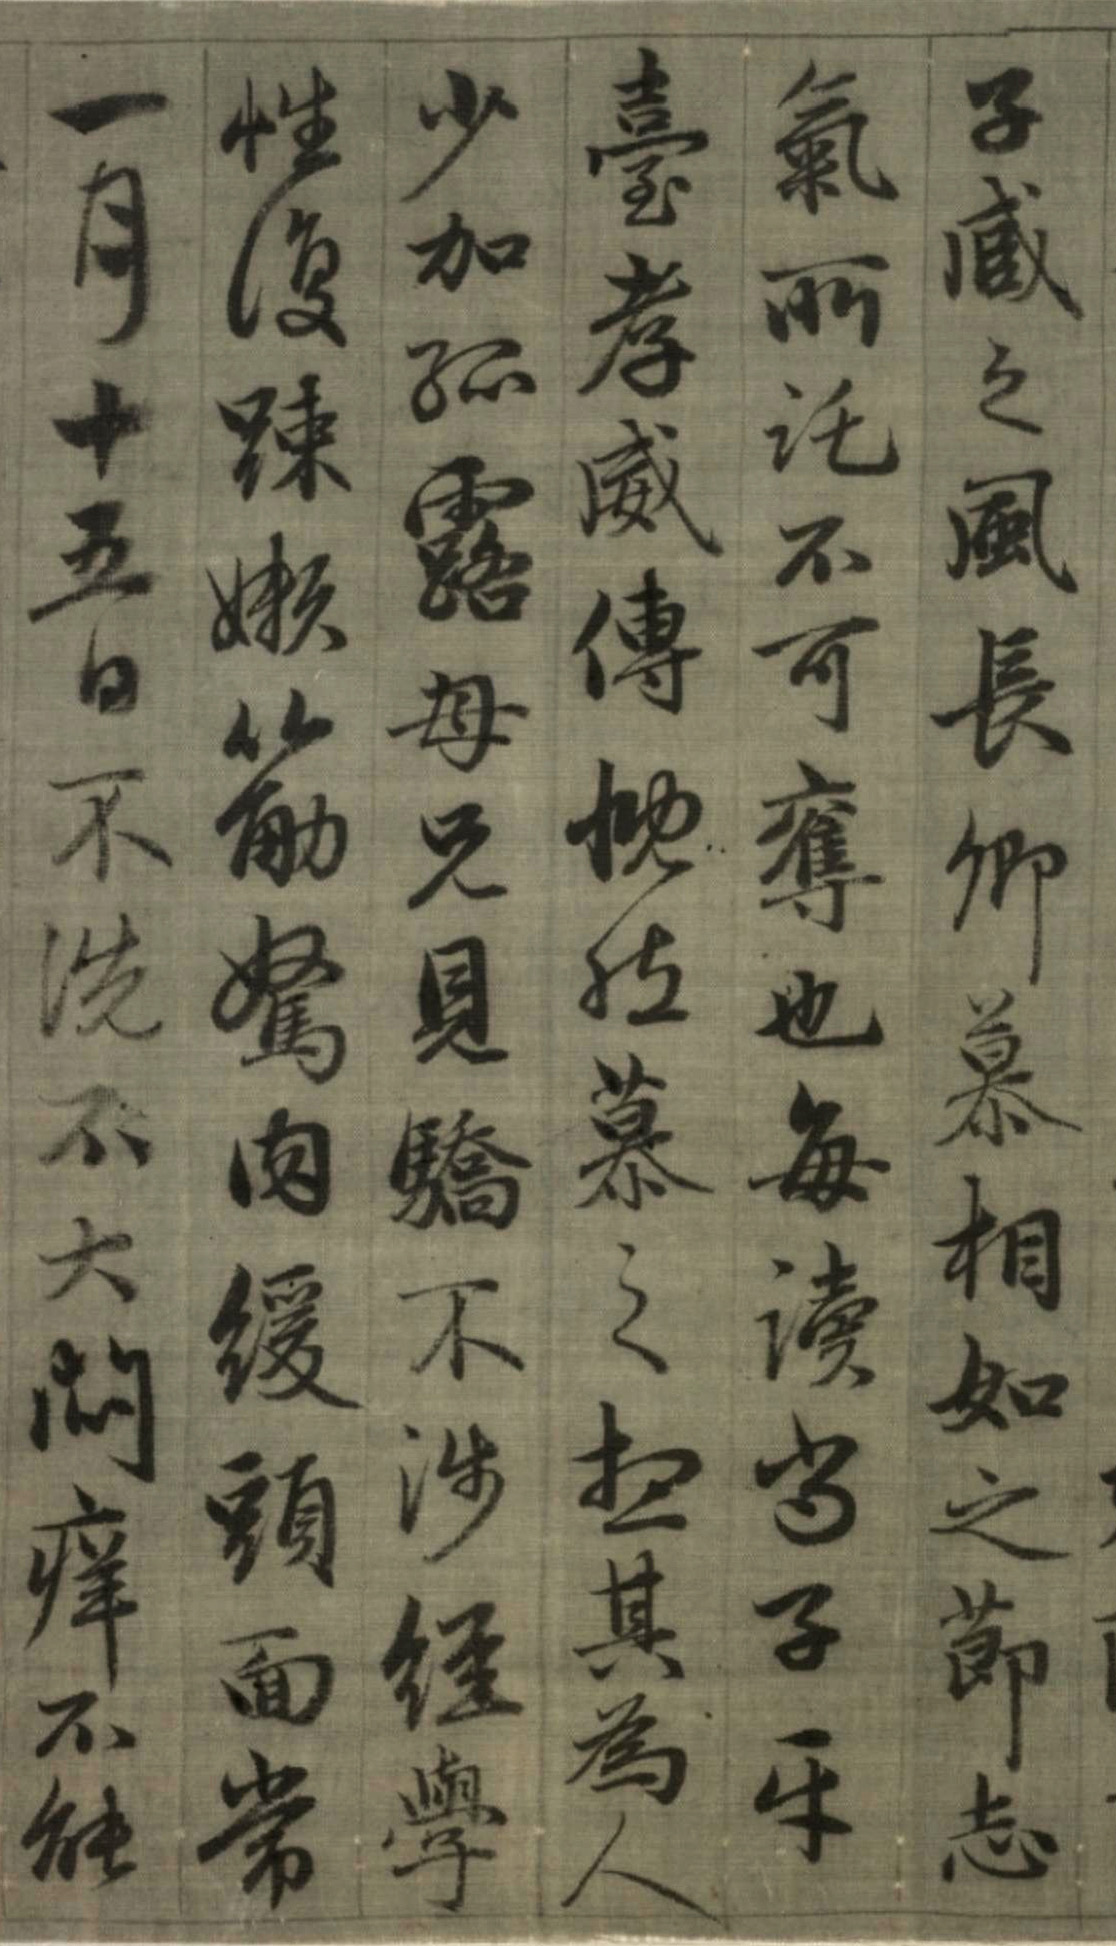 子臧之風長卿慕相如之節志
氣所託不可奪也每讀尚子平
臺孝威傳慨然慕之想其為人
少加孤露母兄見驕不涉經學
性復疎嬾筋駑肉緩頭面常
一月十五日不洗不大悶癢不能